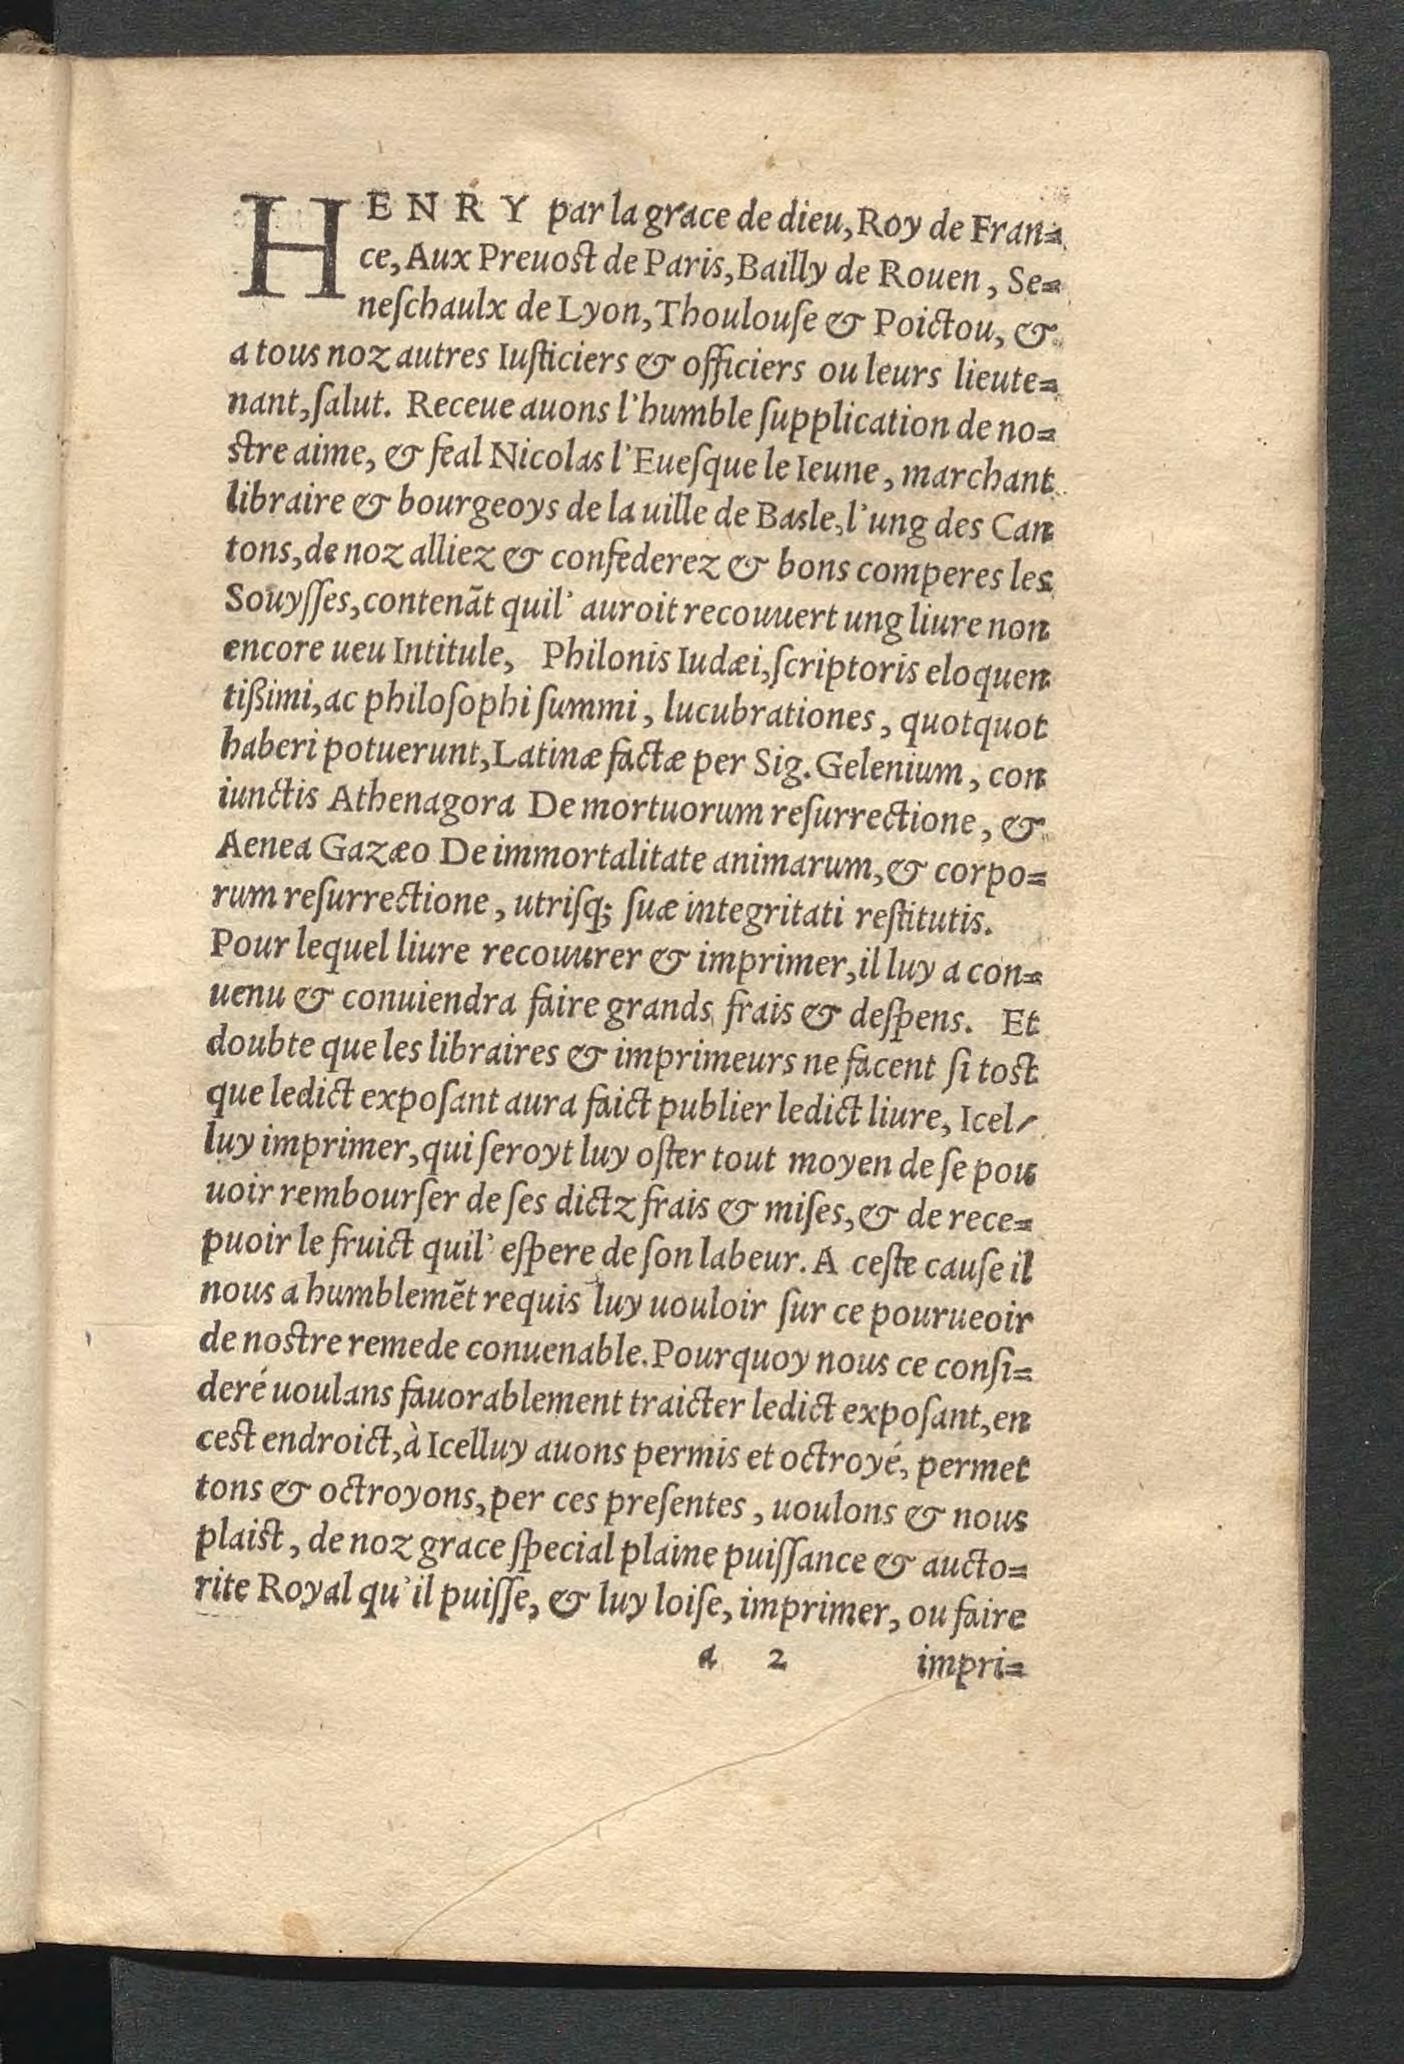 HENRY par la grace de dieu, Roy de Fran=
ce, Aux Preuost de Paris, Bailly de Rouen, Se=
neſchaulx de Lyon, Thoulouſe & Poictou, &
a tous noz autres Iuſticiers & officiers ou leurs lieute=
nant, ſalut. Receue auons l'humble ſupplication de no=
ſtre aime, & feal Nicolas l'Eueſque le Ieune, marchant
libraire & bourgeoys de la uille de Basle, l'ung des Can
tons, de noz alliez & confederez & bons comperes les
Souyſſes, contenãt quil' auroit recouuert ung liure non
encore ueu Intitule, Philonis Iudæi, ſcriptoris eloquen
tißimi, ac philoſophi ſummi, lucubrationes, quotquot
haberi potuerunt, Latinæ factæ per Sig. Gelenium, con
iunctis Athenagora De mortuorum reſurrectione, &
Aenea Gazæo De immortalitate animarum, & corpo=
rum reſurrectione, utriſq; ſuæ integritati reſtitutis.
Pour lequel liure recouurer & imprimer, il luy a con=
uenu & conuiendra faire grands frais & deſpens. Et
doubte que les libraires & imprimeurs ne facent ſi tost
que ledict expoſant aura faict publier ledict liure, Icel/
luy imprimer, qui ſeroyt luy oſter tout moyen de ſe pou
uoir rembourſer de ſes dictz frais & miſes, & de rece=
puoir le fruict quil' eſpere de ſon labeur. A ceſte cauſe il
nous a humblemẽt requis luy uouloir ſur ce pourueoir
de noſtre remede conuenable. Pourquoy nous ce conſi=
deré uoulans fauorablement traicter ledict expoſant, en
cest endroict, à Icelluy auons permis et octroyé, permet
tons & octroyons, per ces preſentes, uoulons & nous
plaist, de noz grace ſpecial plaine puiſſance & aucto=
rite Royal qu'il puiſſe, & luy loiſe, imprimer, ou faire
a 2 impri=